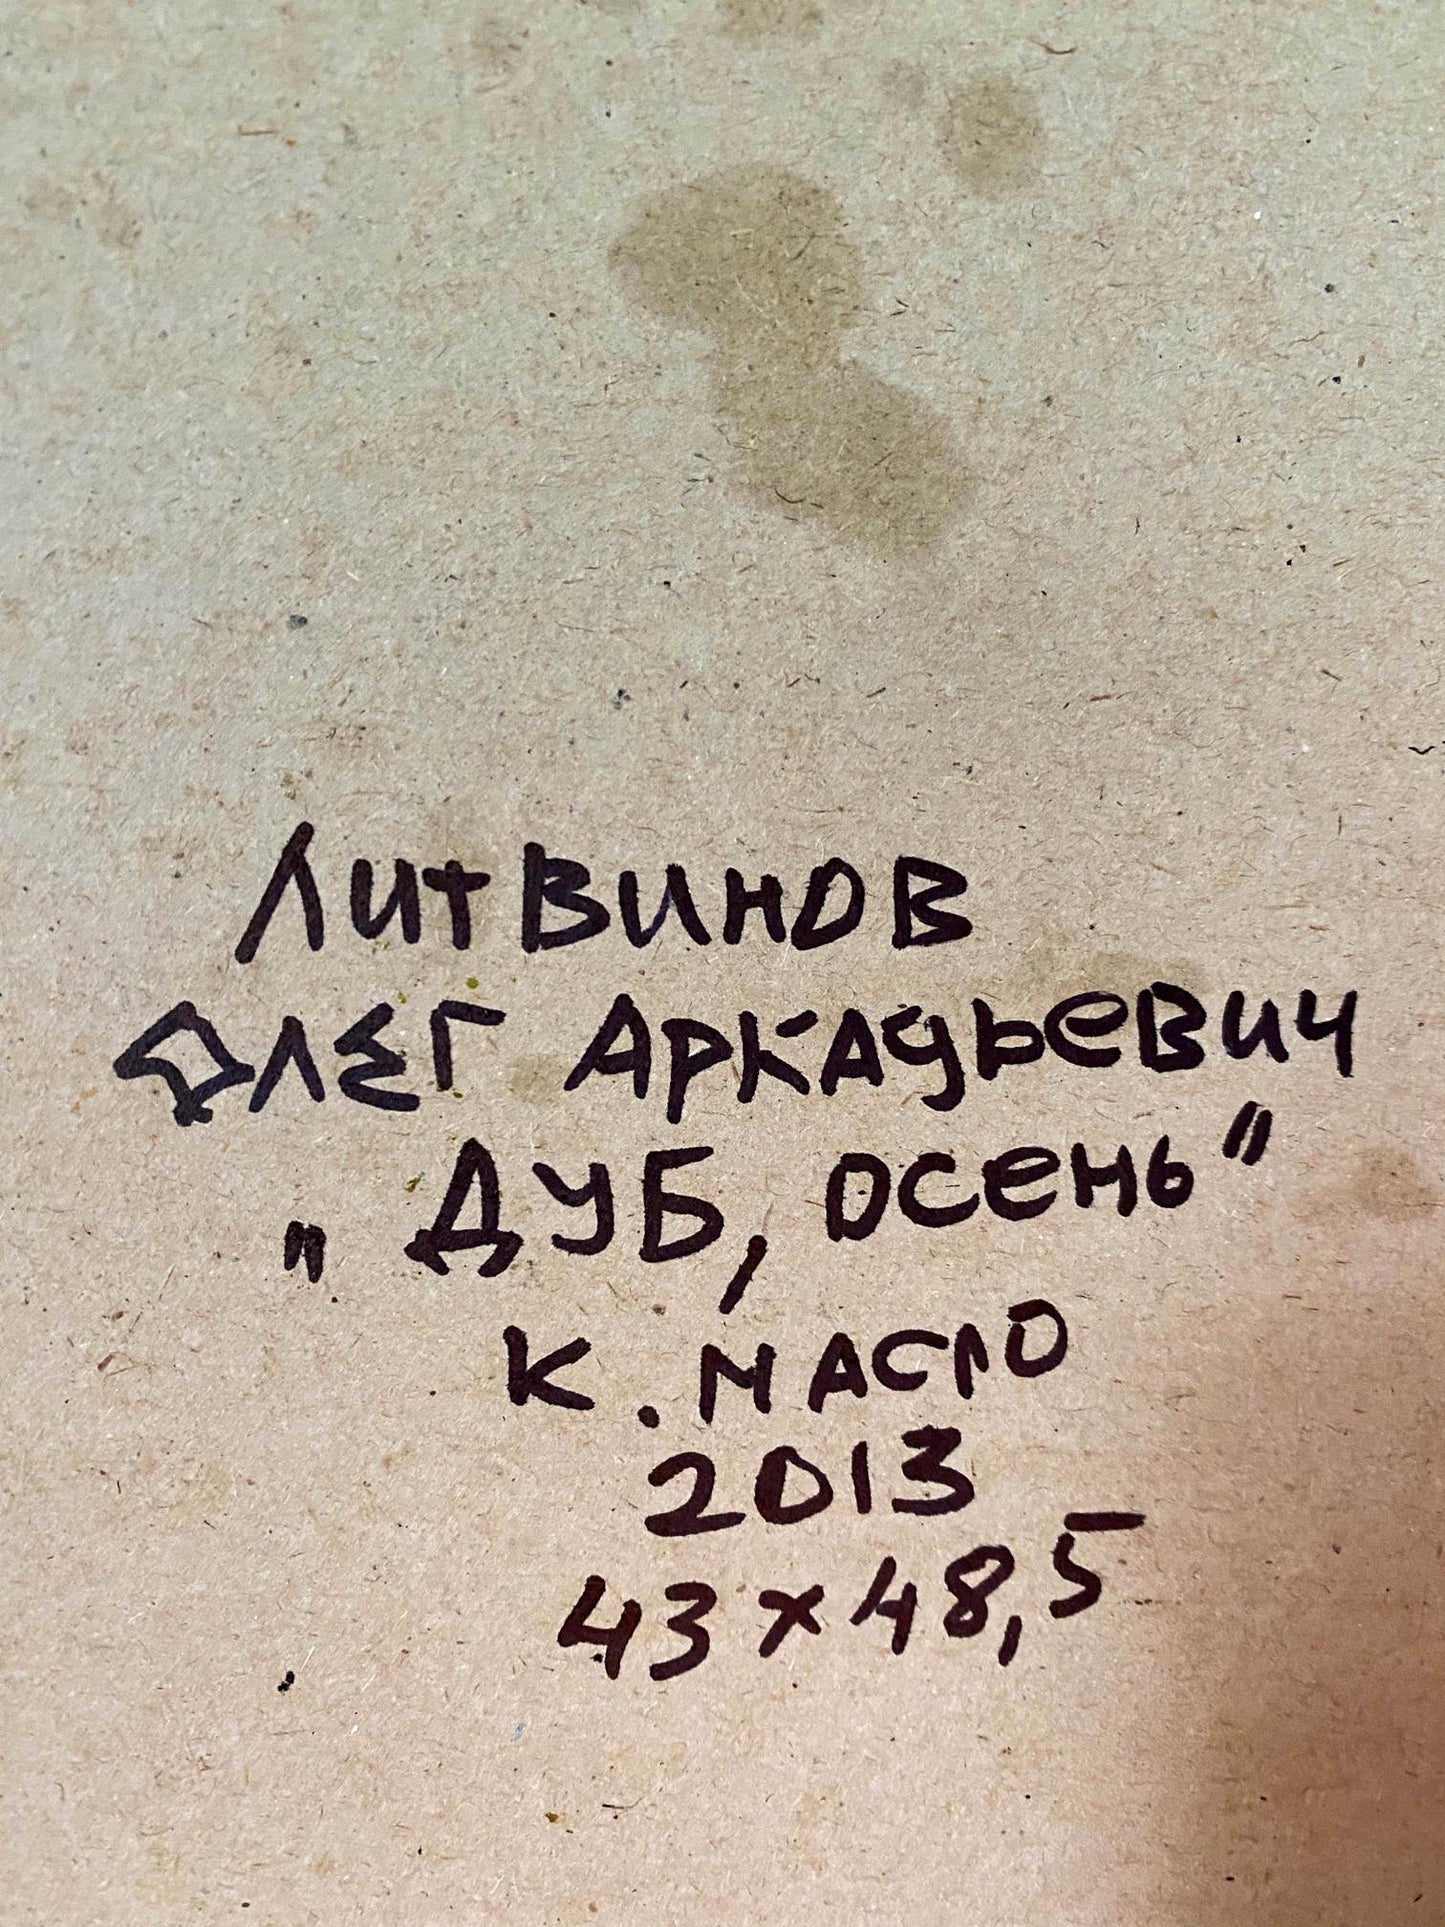 Литвинов
Олег Аркадьевич
„ Дуб, осень"
к. масло
2013
43 x 48,5